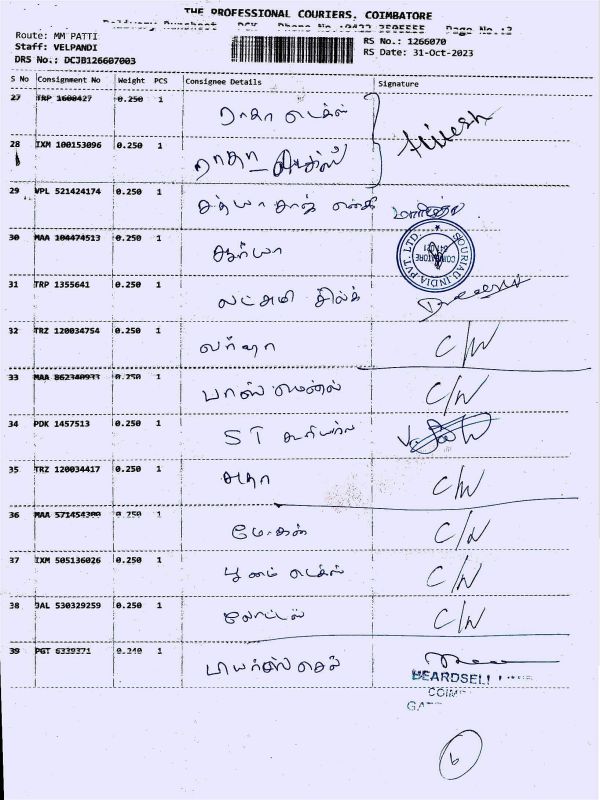 THE PROFESSIONAL COURIERS, COIMBATORE
Page No.:3
Route: MM PATTI
Staff: VELPANDI
DRS No.: DCJB126607003
RS No.: 1266070
RS Date: 31-Oct-2023
S No Consignment No Weight PCS Consignee Details Signature
27 TRP 1608427 0.250 1 ராதா டெக்ஸ்
28 IXM 100153096 0.250 1 ராதா டெக்ஸ்
29 VPL 521424174 0.250 1
30 MAA 104474513 0.250 1 சூர்யா
SOURIAU INDIA PVT. LTD.
COIMBATORE
31 TRP 1355641 0.250 1 லட்சுமி சில்க்
32 TRZ 120034754 0.250 1 வர்ஷா C/W
33 MAA 862340933 0.250 1 C/W
34 PDK 1457513 0.250 1 ST கூரியர்
35 TRZ 120034417 0.250 1 சுதா C/W
36 MAA 571454309 0.250 1 மோகன் C/W
37 IXM 505136026 0.250 1 பூனம் டெக்ஸ் C/W
38 JAL 530329259 0.250 1 லோட்டஸ் C/W
39 PGT 6339371 0.240 1
BEARDSELL
6